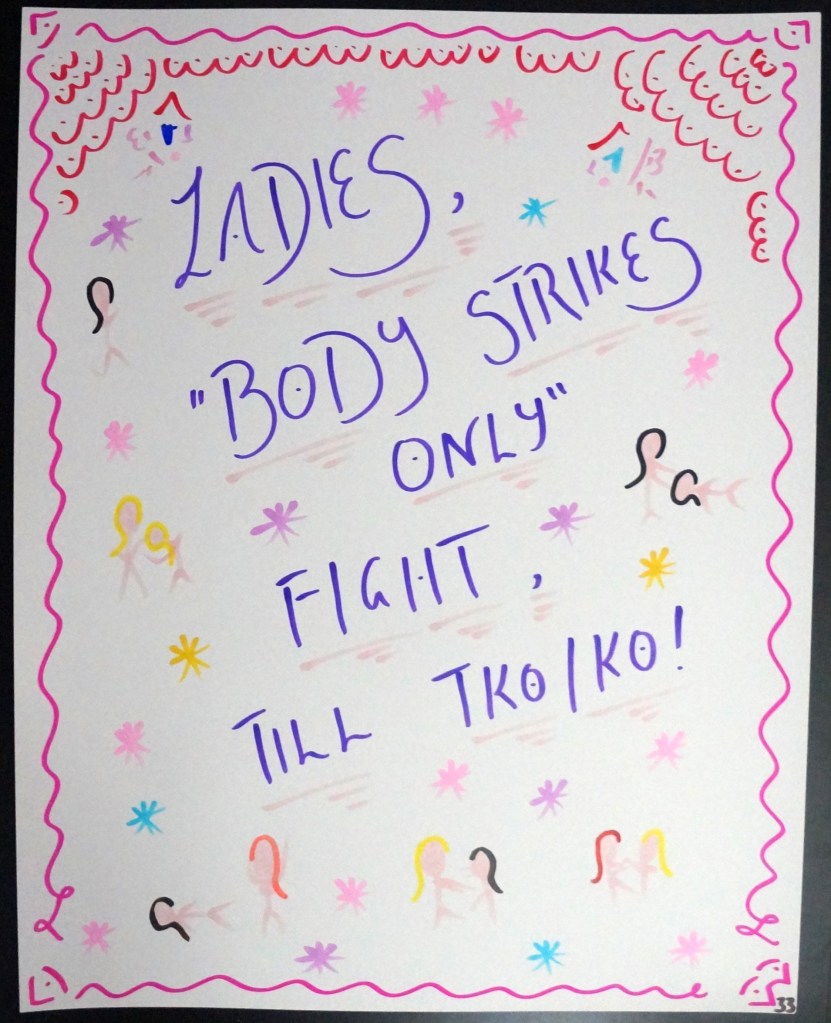 LADIES,
"BODY STRIKES
ONLY"
FIGHT,
TILL TKO/KO!
33